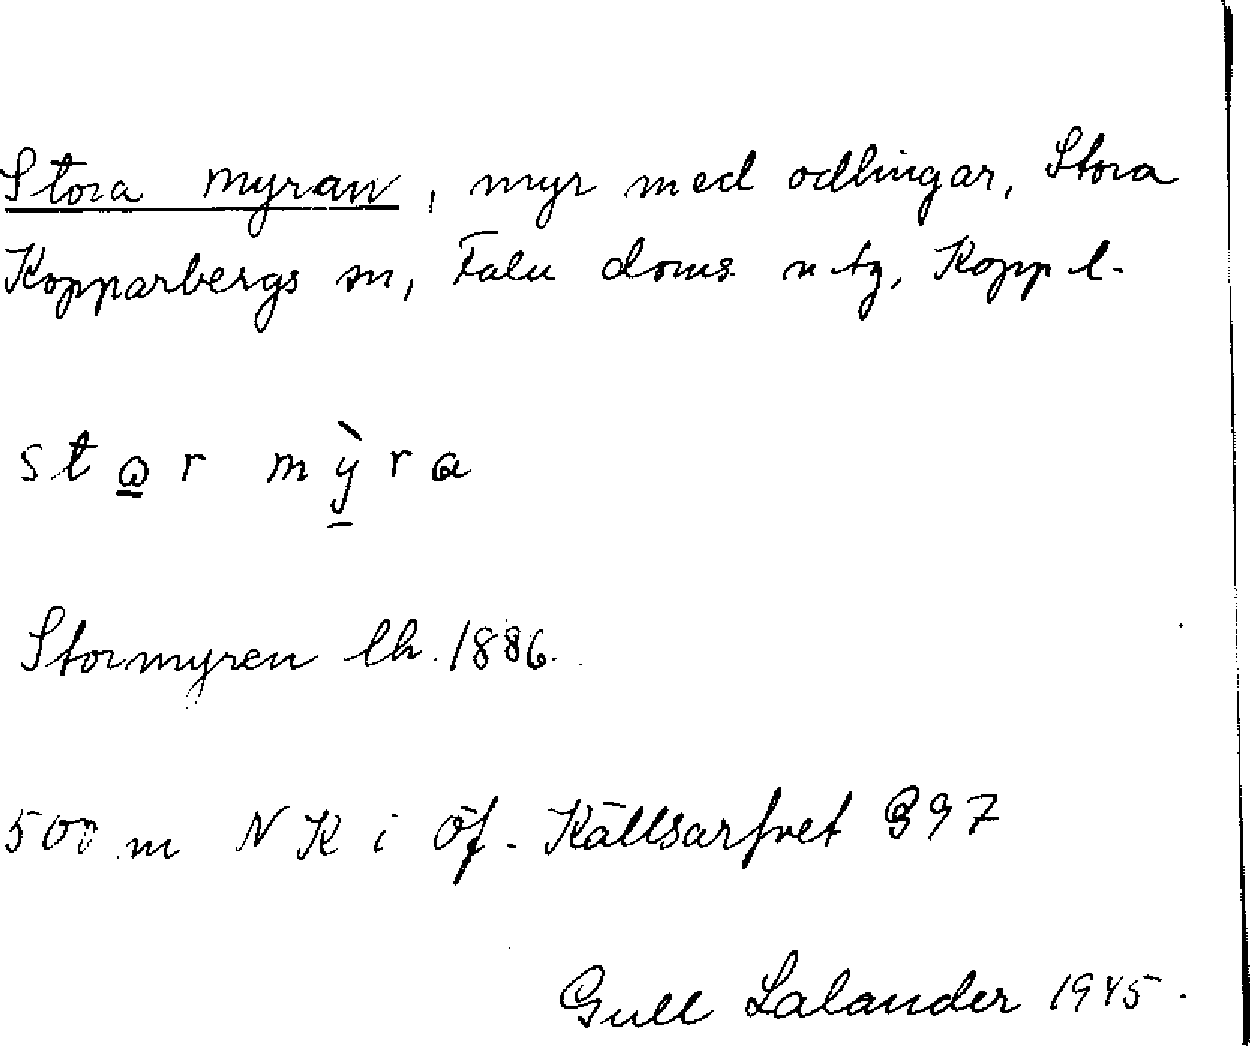 Stora myran, myr med odlingar, Stora
Kopparbergs sn, Falu doms. n tg, Kopp l.
star mỳra
Stormyren lh. 1886.
500 m N K i Öf. Källsarfvet 397
Gull Lalander 1945.